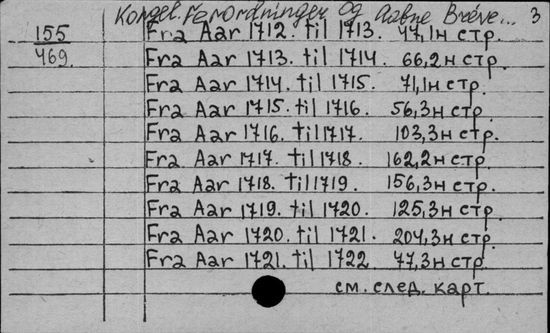 Kongel. Forordninger Og Aabne Breve... 3
155 Fra Aar 1712. til 1713. 47,1н стр.
469. Fra Aar 1713. til 1714. 66,2н стр.
Fra Aar 1714. til 1715. 71,1н стр.
Fra Aar 1715. til 1716. 56,3н стр.
Fra Aar 1716. til 1717. 103,3н стр.
Fra Aar 1717. til 1718. 162,2н стр.
Fra Aar 1718. til 1719. 156,3н стр.
Fra Aar 1719. til 1720. 125,3н стр.
Fra Aar 1720. til 1721. 204,3н стр.
Fra Aar 1721. til 1722. 77,3н стр.
см. след. карт.